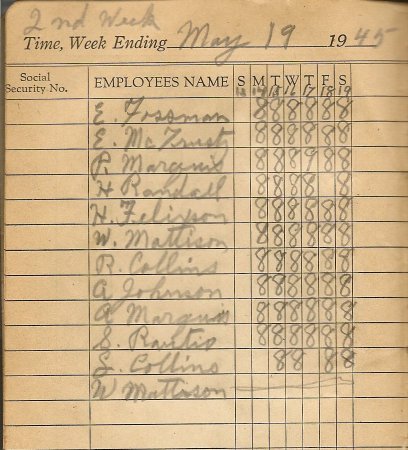 2nd Week
Time, Week Ending May 19 1945
Social Security No. EMPLOYEES NAME S M T W T F S
13 14 15 16 17 18 19
E. Fossman 8 8 8 8 8 8
E. McTrusty 8 8 8 8 8 8
P. Marquis 8 8 8 9 8 8
H Randall 8 8 8 8 8
H. Felixson 8 8 8 8 8 8
W. Mattison 8 8 8 8 8 8
R. Collins 8 8 8 8 8
A Johnson 8 8 8 8 8 8
A Marquis 8 8 8 8 8 8
S. Rautio 8 8 8 8 8 8
S. Collins 8 8 8 8
W Mattison